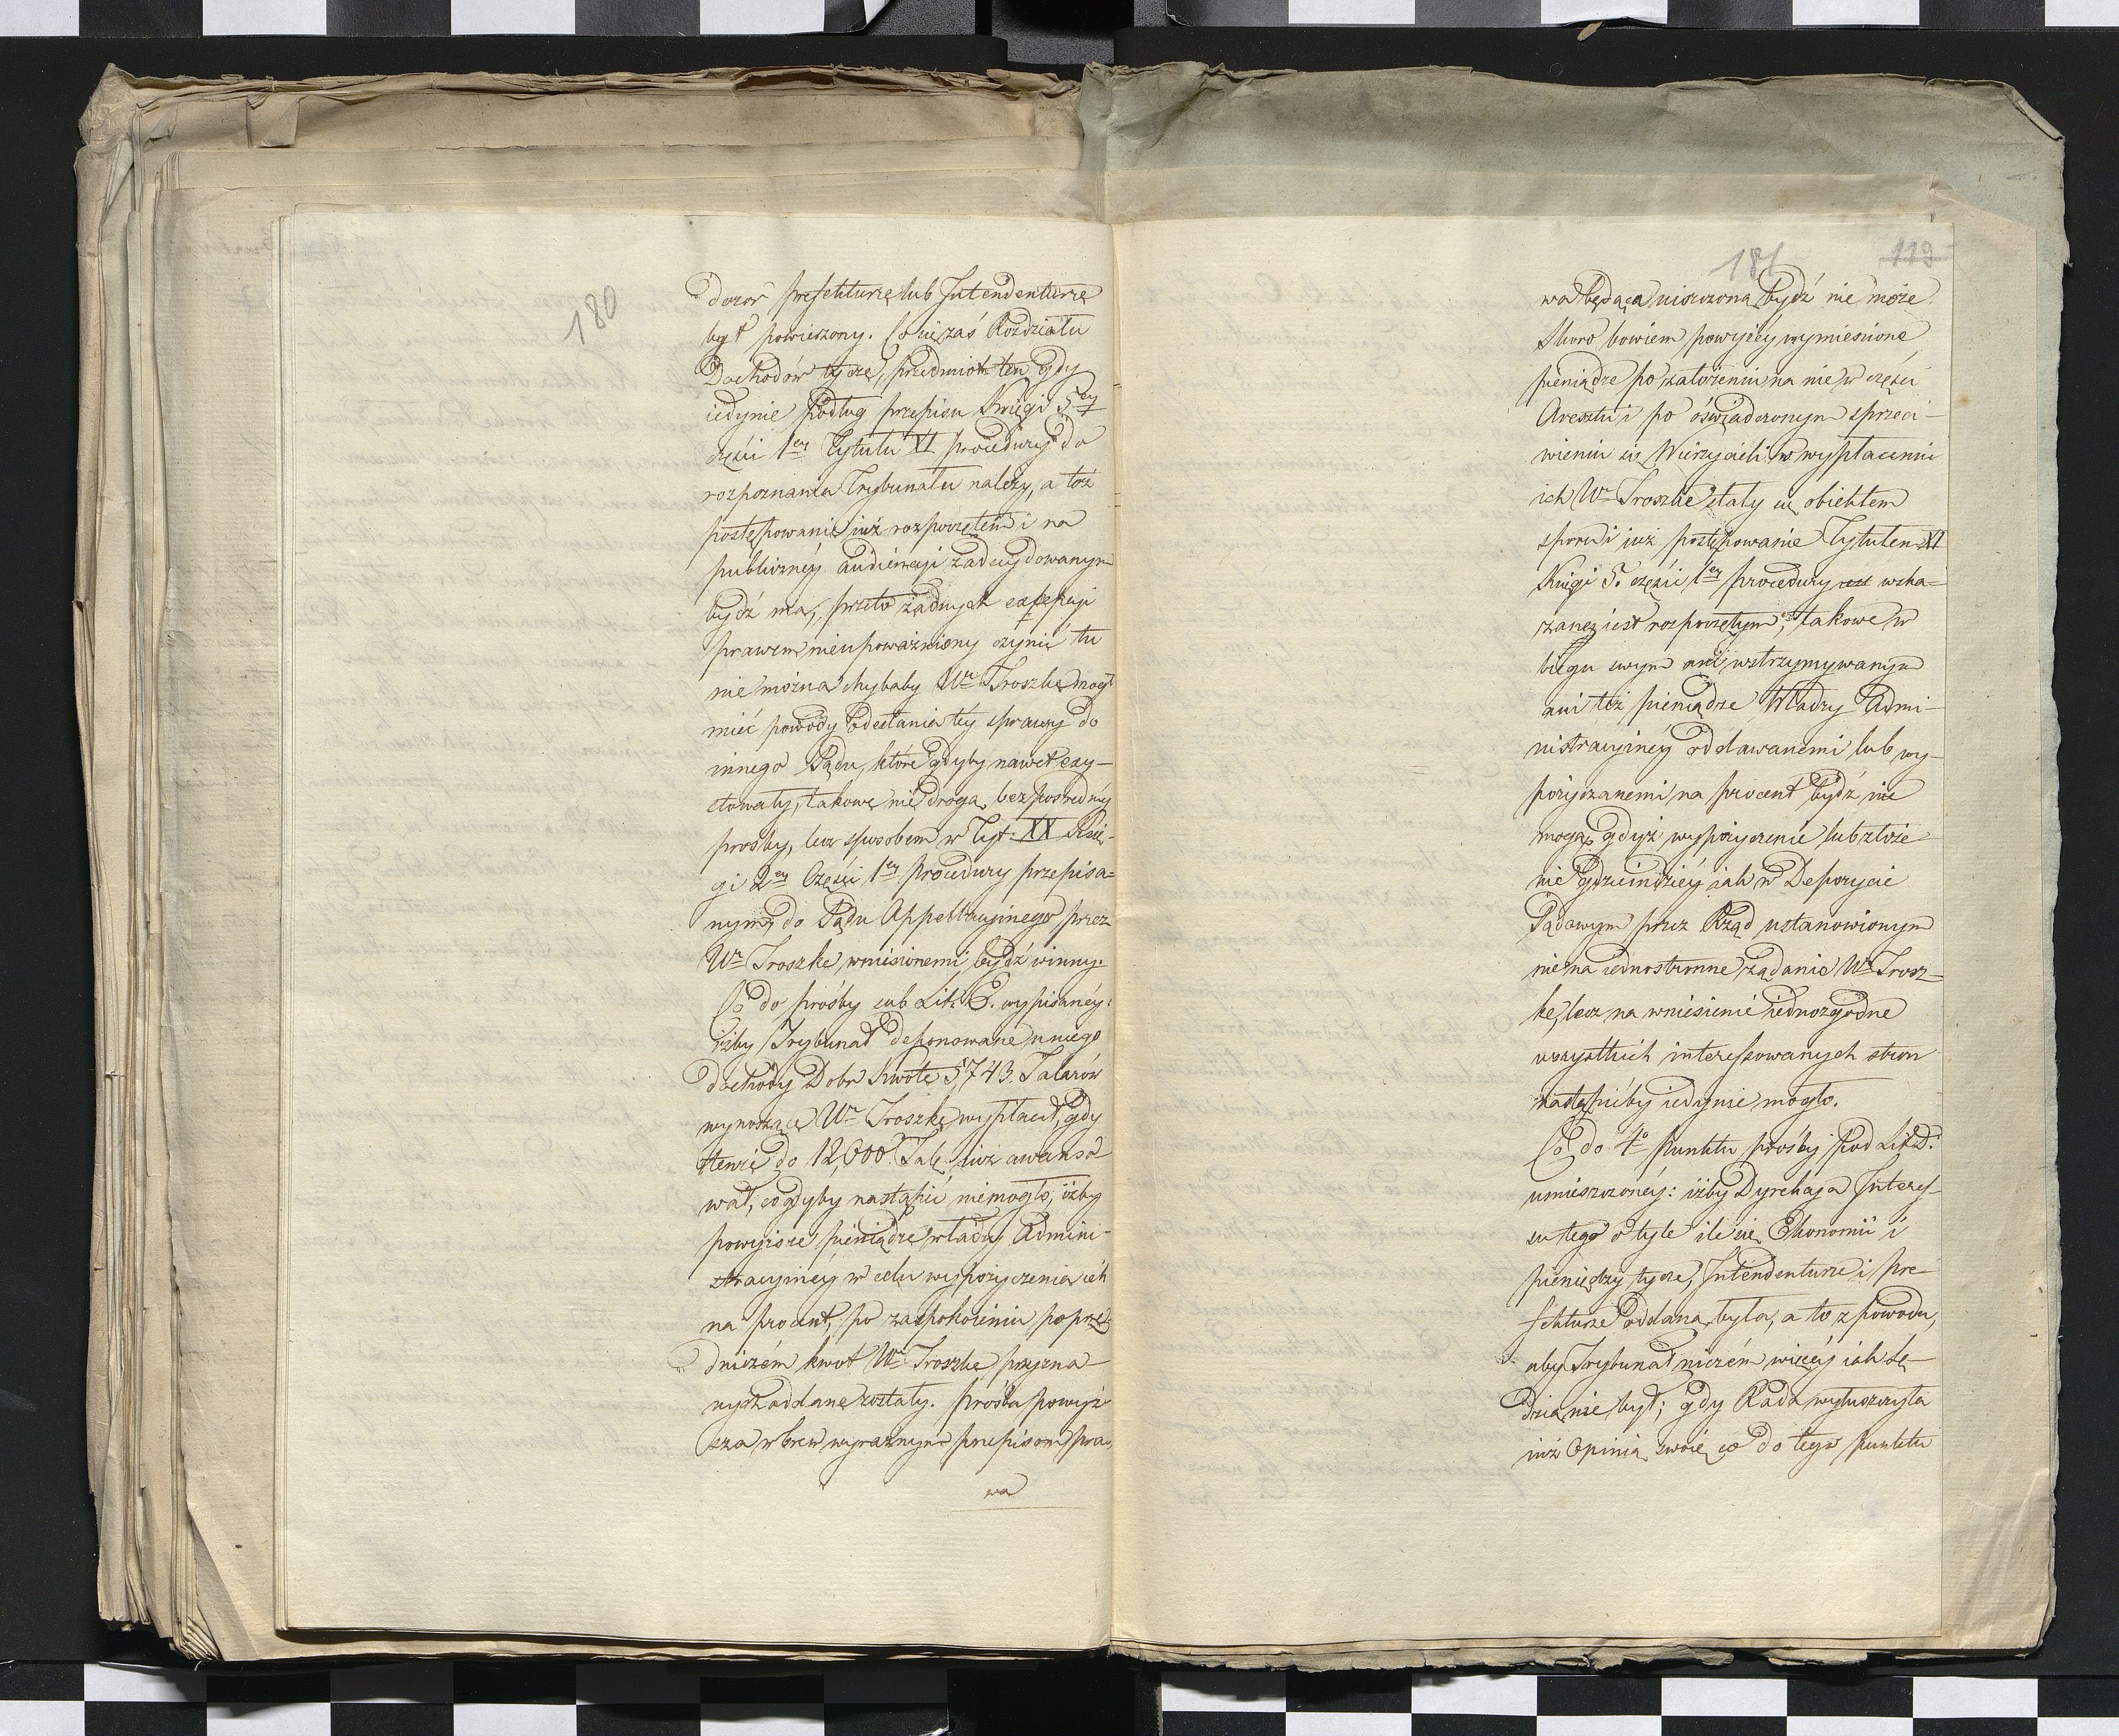 180
dozór prefekturze lub Intendenturze
był powierzony. Co się zaś Rozdziału
Dochodów tycze, przedmiot ten gdy
iedynie podług przepisu Księgi 5ey
części 1ey Tytułu XI procedury do
rozpoznania Trybunału należy, a toż
postępowanie iuż rozpoczętem i na
publiczney audiencyi zadecydowanym
bydź ma, przeto żadnych excepcyi
prawem nieupoważniony czynić tu
nie można chybaby Wr. Troszke mogł
mieć powody odesłania tey sprawy do
innego Sądu, które gdyby nawet exy-
stowały, takowe nie drogą bezpośredniey
prośby, lecz sposobem w Tyt. XX Księ-
gi 2ey Części 1ey procedury przepisa-
nym, do Sądu Appellacyinego przez
Wr Troszke wniesionemi bydź winny.
Co do prośby sub Lit. C. wypisaney:
iżby Trybunał deponowane u niego
dochody Dobr kwotę 5743. Talarów
wynoszące Wr Troszke wypłacił, gdy
tenże do 12,000. Tal. iuż awanso
wał, co gdyby nastąpić niemogło, iżby
powyższe pieniądze władzy Admini-
stracyiney w celu wypożyczenia ich
na procent, po zaspokoieniu poprze-
dniczém kwot Wr Troszke przyzna-
nych oddane zostały. Prośba powyż-
sza wbrew wyraznym przepisom pra-
wa
181
119
wa będąca uiszczoną bydź nie może.
Skoro bowiem powyżey wymienione
pieniądze po założeniu na nie w części
Aresztu i po oświadczonym sprzeci-
wieniu się Wierzycieli w wypłaceniu
ich Wr Troszke stały się obiektem
sporu i iuż postępowanie Tytułem XI
Księgi 5. części 1ey procedury wska-
zane iest rozpoczętym; takowe w
biegu swym ani wstrzymywanym
ani też pieniądze Władzy Admi-
nistracyiney oddawanemi lub wy-
pożyczanemi na procent bydź nie
mogą, gdyż wypożyczenie lub złoże-
nie gdzieindziey iak w Depozycie
Sądowym przez Rząd ustanowionym
nie na iednostronne żądanie Wr Trosz-
ke, lecz na wniesienie iednozgodne
wszystkich interessowanych stron
nastąpićby iedynie mogło.
Co do 4o punktu prośby pod Lit. D.
umieszczoney: iżby Dyrekcya Interes-
su tego o tyle ile się Ekonomii i
pieniędzy tycze, Intendenturze i pre-
fekturze oddana była, a to z powodu,
aby Trybunał niczém więcéy iak Sę-
dzią nie był; gdy Rada wyłuszczyła
iuż Opinią swoię co do tego punktu